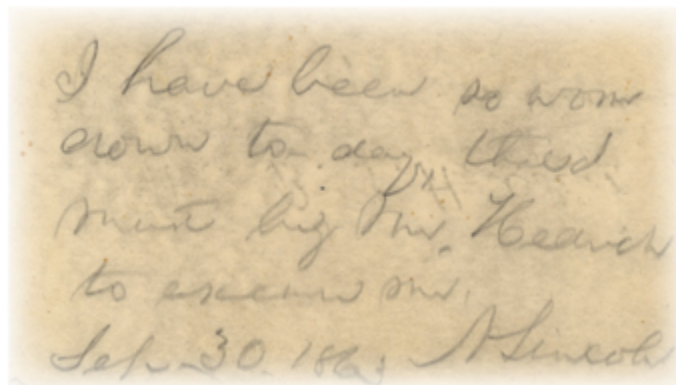 I have been so worn
down to day, that I
must beg Mr. Hedrick
to excuse me.
Sep. 30. 1863 A Lincoln